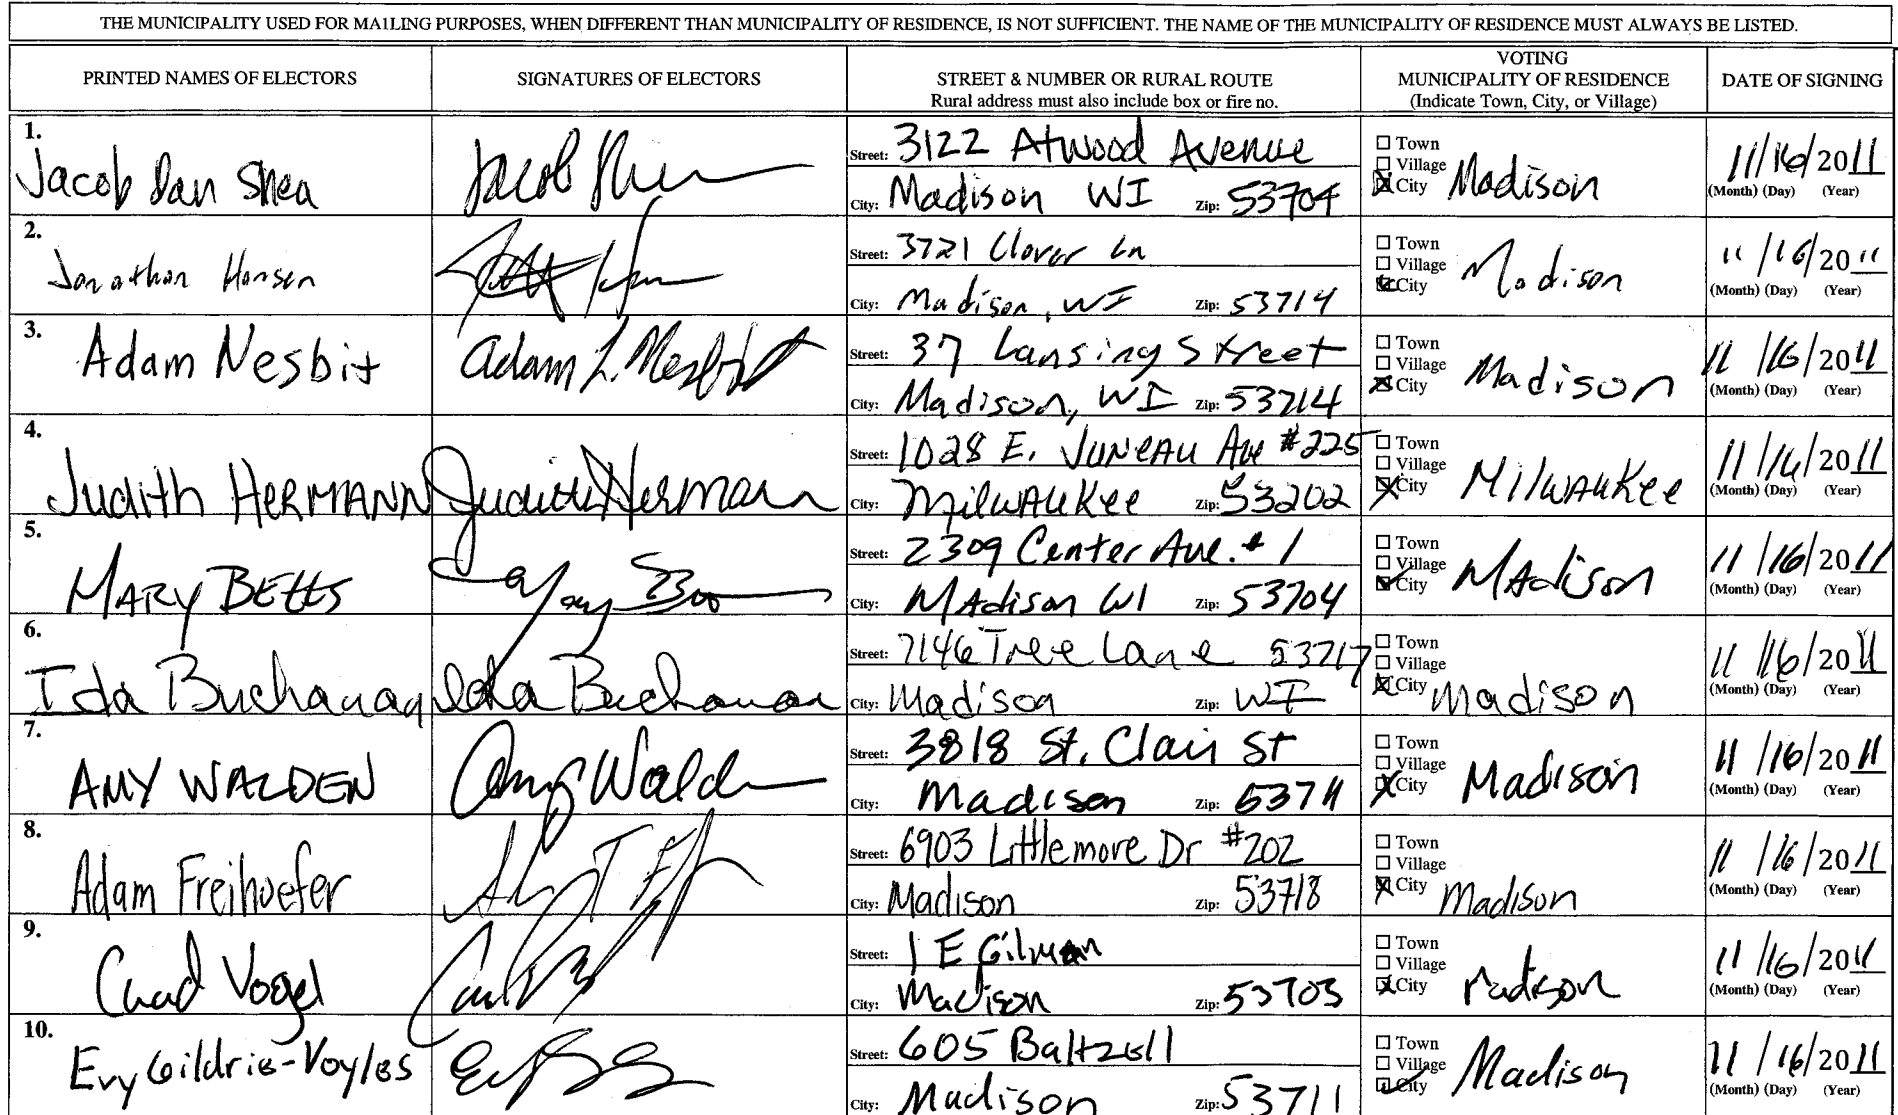 THE MUNICIPALITY USED FOR MA1LING PURPOSES, WHEN DIFFERENT THAN MUNICIPALITY OF RESIDENCE, IS NOT SUFFICIENT. THE NAME OF THE MUNICIPALITY OF RESIDENCE MUST ALWAYS BE LISTED.
PRINTED NAMES OF ELECTORS
SIGNATURES OF ELECTORS
STREET & NUMBER OR RURAL ROUTE
Rural address must also include box or fire no.
VOTING
MUNICIPALITY OF RESIDENCE
(Indicate Town, City, or Village)
DATE OF SIGNING
1.
Jacob Dan Shea
Jacob Shea
Street: 3122 Atwood Avenue
City: Madison WI Zip: 53704
Town
Village
City Madison
11/16/2011
(Month) (Day) (Year)
2.
Jonathan Hansen
Street: 3721 Clover Ln
City: Madison, WI Zip: 53714
Town
Village
City Madison
11/16/2011
(Month) (Day) (Year)
3.
Adam Nesbit
Adam L. Nesbit
Street: 37 Lansing Street
City: Madison, WI Zip: 53714
Town
Village
City Madison
11/16/2011
(Month) (Day) (Year)
4.
Judith HERMANN
Judith Hermann
Street: 1028 E. JUNEAU Ave #225
City: MilwAuKee Zip: 53202
Town
Village
City MilwAuKee
11/16/2011
(Month) (Day) (Year)
5.
MARY BETTS
Mary
Street: 2309 Center Ave. # 1
City: MAdison WI Zip: 53704
Town
Village
City MAdison
11/16/2011
(Month) (Day) (Year)
6.
Ida Buchanan
Ida Buchanan
Street: 7146 Tree Lane 53717
City: Madison Zip: WI
Town
Village
City Madison
11/16/2011
(Month) (Day) (Year)
7.
AMY WALDEN
Amy Walden
Street: 3818 St. Clair St
City: Madison Zip: 53711
Town
Village
City Madison
11/16/2011
(Month) (Day) (Year)
8.
Adam Freihoefer
Street: 6903 Littlemore Dr #202
City: Madison Zip: 53718
Town
Village
City Madison
11/16/2011
(Month) (Day) (Year)
9.
Chad Vogel
Street: 1 E Gilman
City: Madison Zip: 53703
Town
Village
City Madison
11/16/2011
(Month) (Day) (Year)
10.
Evy Gildrie-Voyles
Street: 605 Baltzell
City: Madison Zip: 53711
Town
Village
City Madison
11/16/2011
(Month) (Day) (Year)